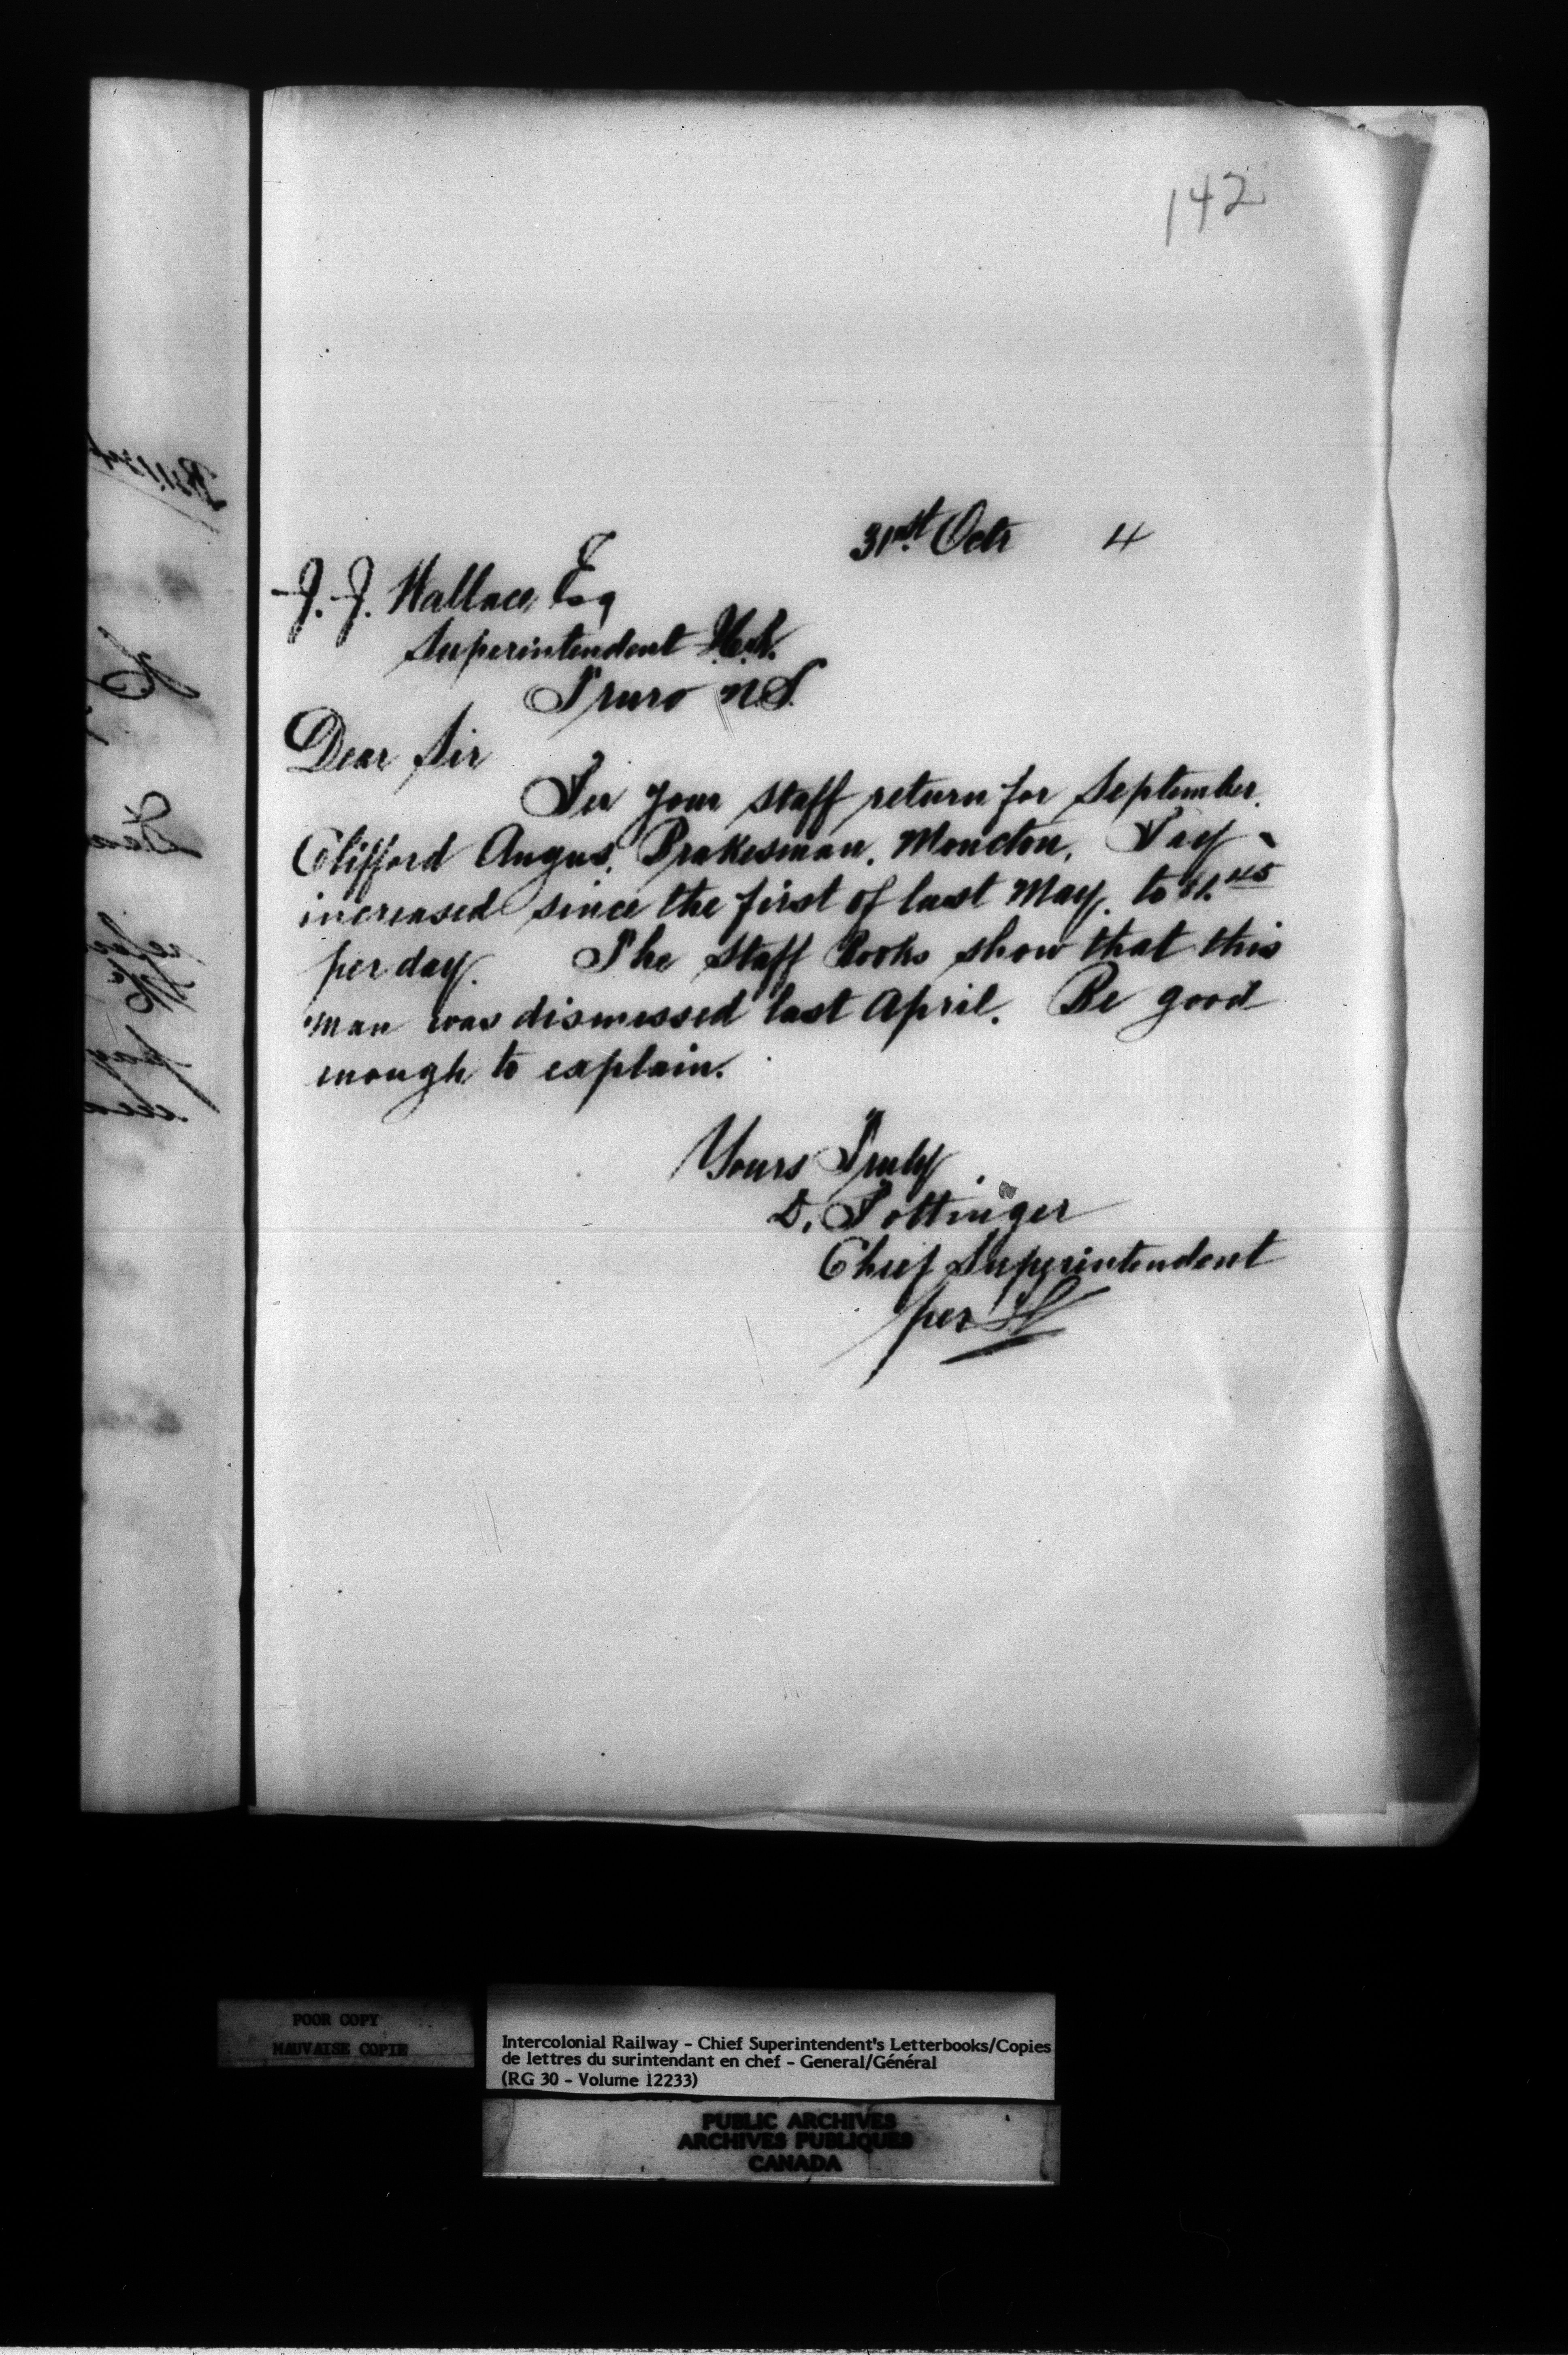 142
31st Octr 4
J. J. Wallace, Esq
Superintendent
Truro N.S.
Dear Sir
In your staff return for September.
Clifford Angus, Brakesman, Moncton, Pay
increased since the first of last May, to $1.45
per day. The Staff Books show that this
man was dismissed last April. Be good
enough to explain.
Yours Truly
D. Pottinger
Chief Superintendent
per
POOR COPY
MAUVAISE COPIE
Intercolonial Railway - Chief Superintendent's Letterbooks/Copies
de lettres du surintendant en chef - General/Général
(RG 30 - Volume 12233)
PUBLIC ARCHIVES
ARCHIVES PUBLIQUES
CANADA